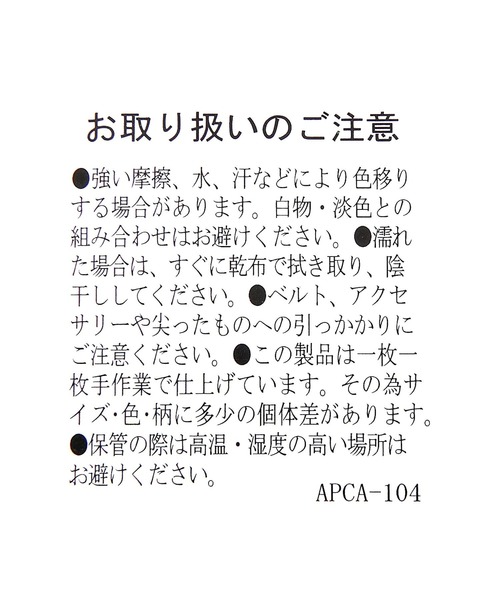 お取り扱いのご注意
●強い摩擦、水、汗などにより色移り
する場合があります。白物・淡色との
組み合わせはお避けください。●濡れ
た場合は、すぐに乾布で拭き取り、陰
干ししてください。●ベルト、アクセ
サリーや尖ったものへの引っかかりに
ご注意ください。●この製品は一枚一
枚手作業で仕上げています。その為サ
イズ・色・柄に多少の個体差があります。
●保管の際は高温・湿度の高い場所は
お避けください。
APCA-104